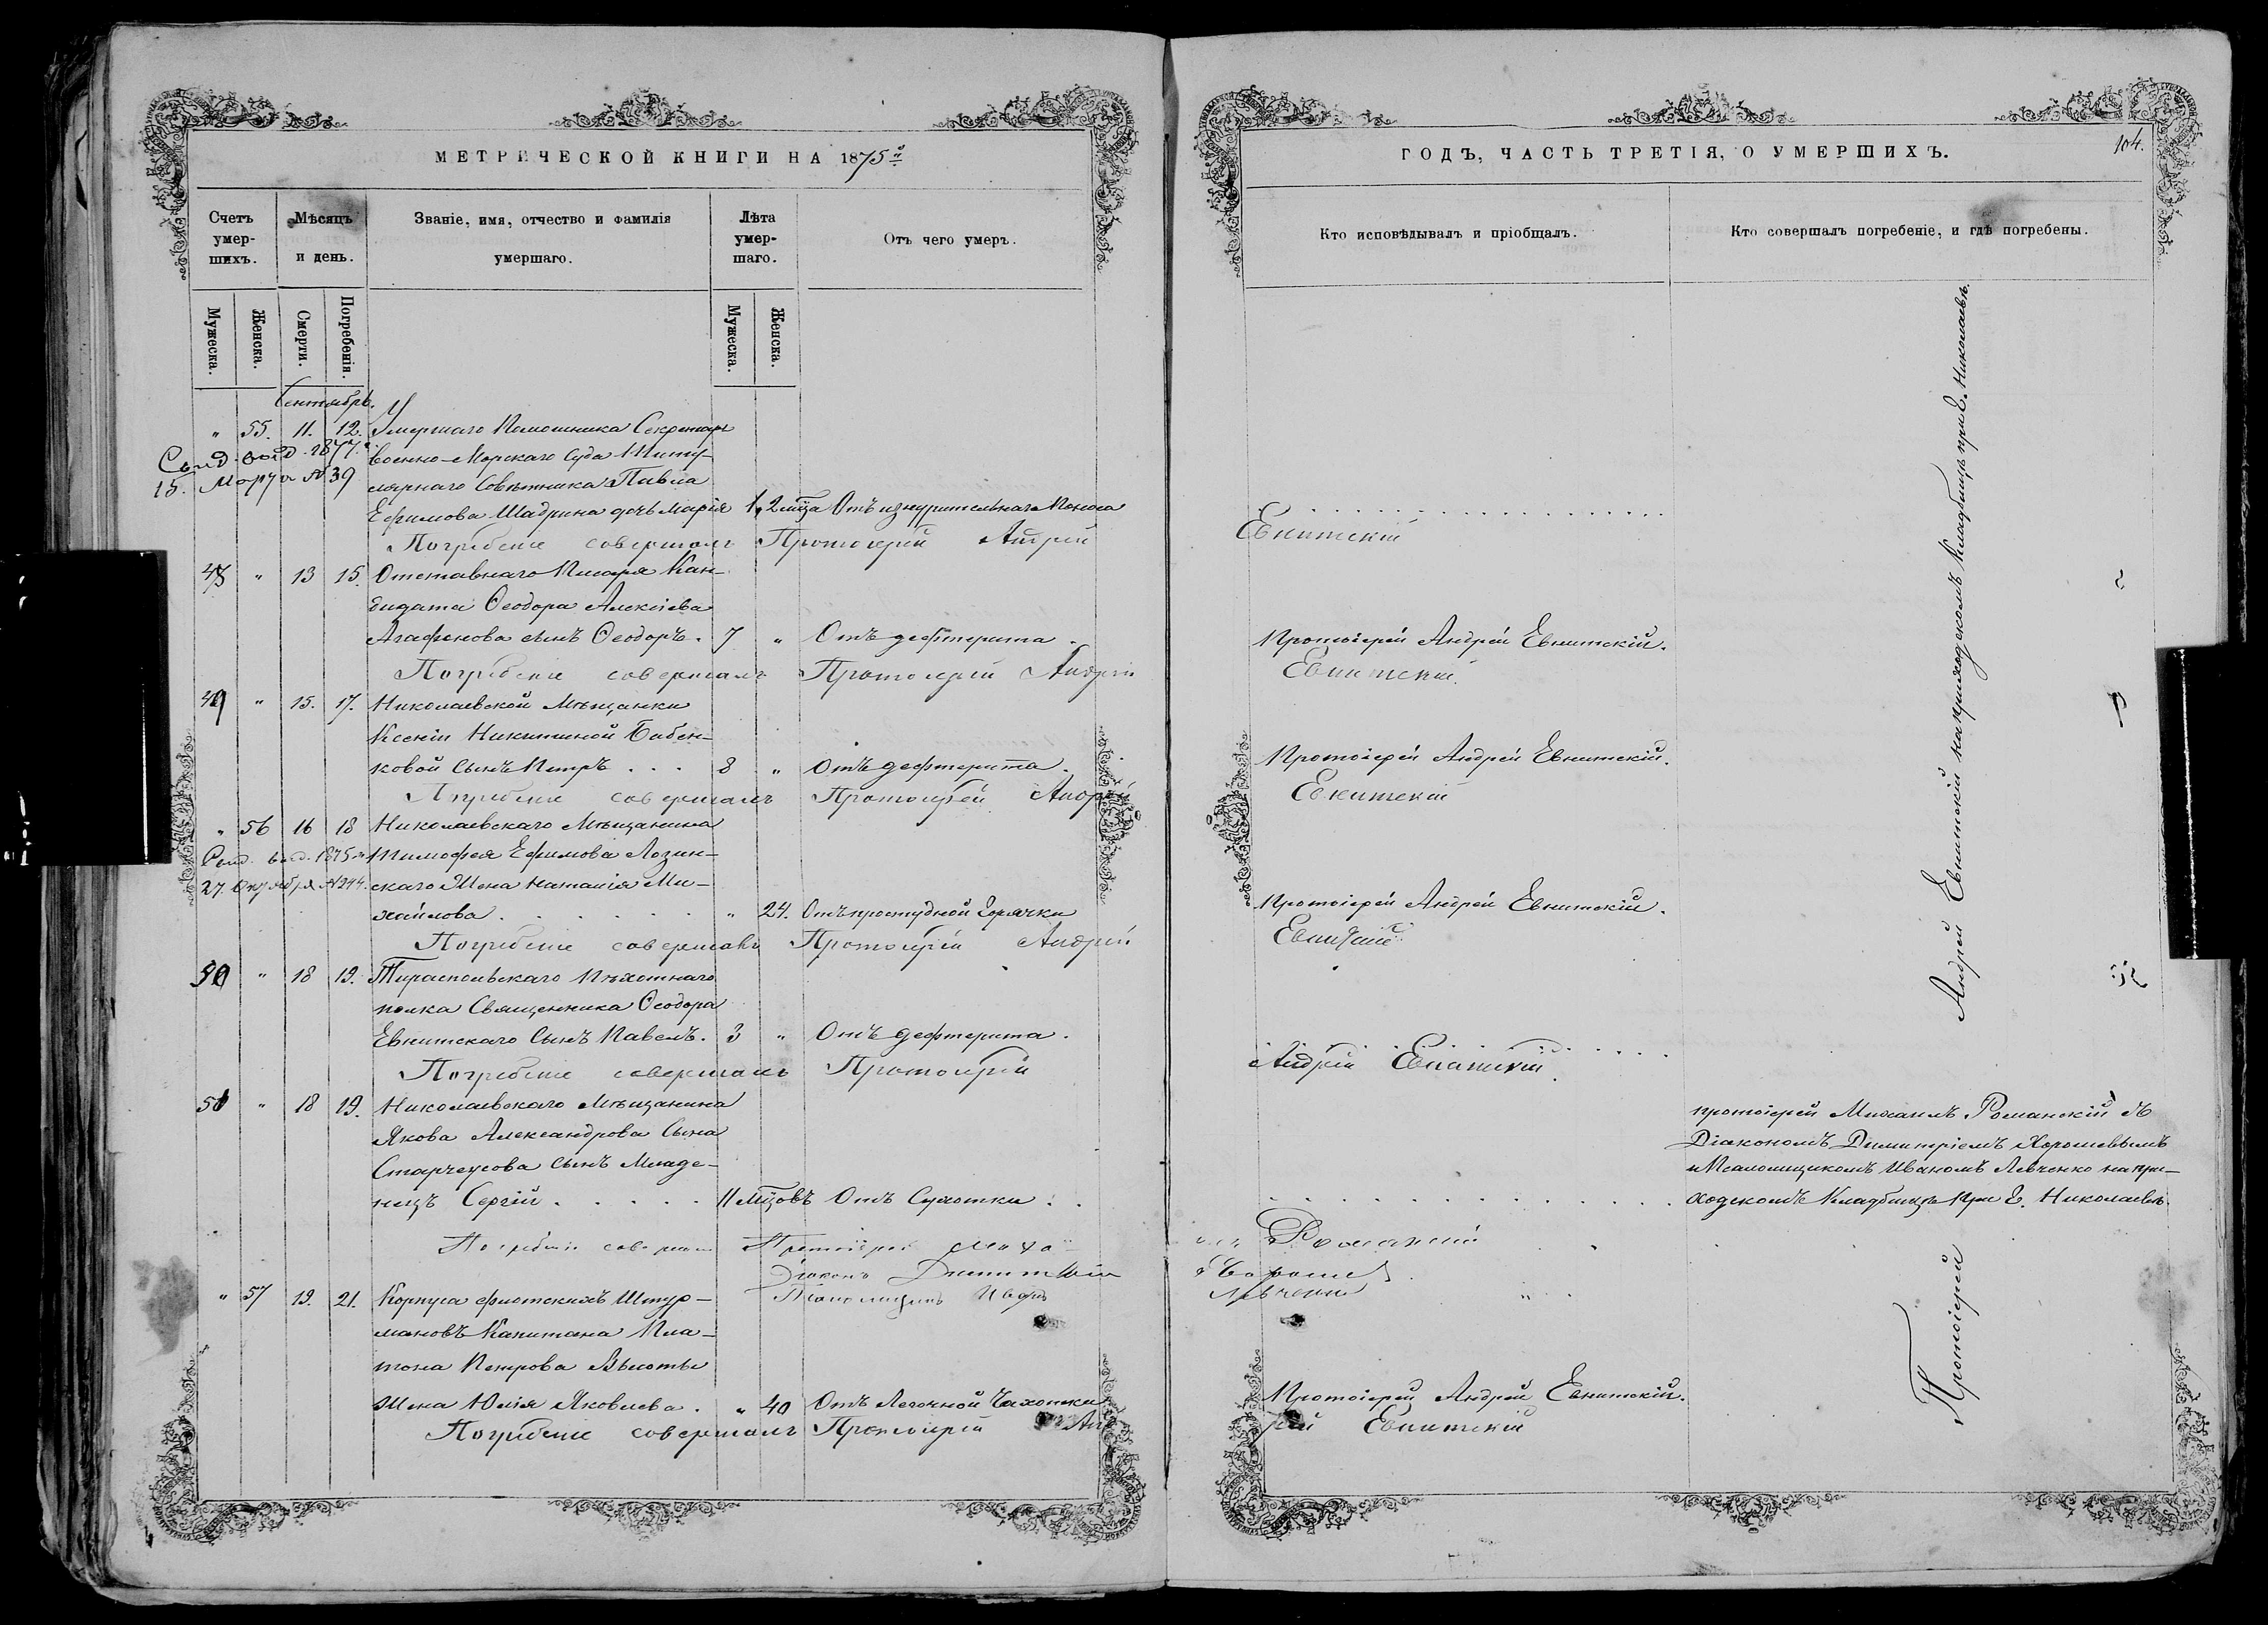 МЕТРИЧЕСКОЙ КНИГИ НА 1875й
Счетъ умер-шихъ.
Мѣсяцъ и день.
Званіе, имя, отчество и фамилія умершаго.
Лѣта умер-шаго.
Отъ чего умеръ.
Мужеска. Женска. Смерти. Погребенія. Мужеска. Женска.
Сентябрь.
" 55. 11. 12. Умершаго Помошника Секретаря
Военно-Морскаго Суда Титу-
лярнаго Совѣтника Павла
Ефимова Шадрина дочь Марія 1, 2 мѣца Отъ изнурительнаго Поноса
Погребеніе совершалъ Протоіерей Андрей
15. Марта № 39
48 " 13 15. Отставнаго Писаря Кан-
дидата Ѳеодора Алексіева
Агафонова сынъ Ѳеодоръ. 7 " Отъ дефтерита.
Погребеніе совершалъ Протоіерей Андрей
49 " 15. 17. Николаевской Мѣщанки
Ксеніи Никитиной Бабен-
ковой сынъ Петръ . . . 8 " Отъ дефтерита.
Погребеніе совершалъ Протоіерей Андрей
" 56 16 18 Николаевскаго Мѣщанина
Тимофея Ефимова Лозин-
скаго Жена Наталія Ми-
хайлова . . . . . . " 24. Отъ простудной Горячки
Погребеніе совершалъ Протоіерей Андрей
27. Октября № 244.
50 " 18 19. Тираспольскаго Пѣхотнаго
полка Священника Ѳеодора
Евнитскаго Сынъ Павелъ. 3 " Отъ дефтерита.
Погребеніе совершалъ Протоіерей
51 " 18 19. Николаевскаго Мѣщанина
Якова Александрова Сына
Старчеусова сынъ Младе-
нецъ Сергій . . . . . 11 мѣцовъ Отъ Сухотки . .
Погребеніе соверш Протоіерей Миха
Діаконъ Димитрій
Псаломщикъ Иванъ
" 57 19. 21. Корпуса флотскихъ Штур-
мановъ Капитана Пла-
тона Петрова Высоты
Жена Юлія Яковлева . " 40 Отъ Легочной Чахотки
Погребеніе совершалъ Протоіерей Анд
ГОДЪ, ЧАСТЬ ТРЕТІЯ, О УМЕРШИХЪ.
104.
Кто исповѣдывалъ и пріобщалъ.
Кто совершалъ погребеніе, и гдѣ погребены.
Евнитскій
Протоіерей Андрей Евнитскій.
Евнитскій
Протоіерей Андрей Евнитскій.
Евнитскій
Протоіерей Андрей Евнитскій.
Евнитскій
Андрей Евнитскій
илъ Романскій
Хорошев
Левченко
Протоіерей Андрей Евнитскій.
рей Евнитскій
Протоіерей Андрей Евнитскій на приходскомъ Кладбищѣ при Г. Николаевѣ.
протоіерей Михаилъ Романскій съ
Діакономъ Димитріемъ Хорошевымъ
и Псаломщикомъ Иваномъ Левченко на при-
ходскомъ Кладбищѣ при Г. Николаевѣ.